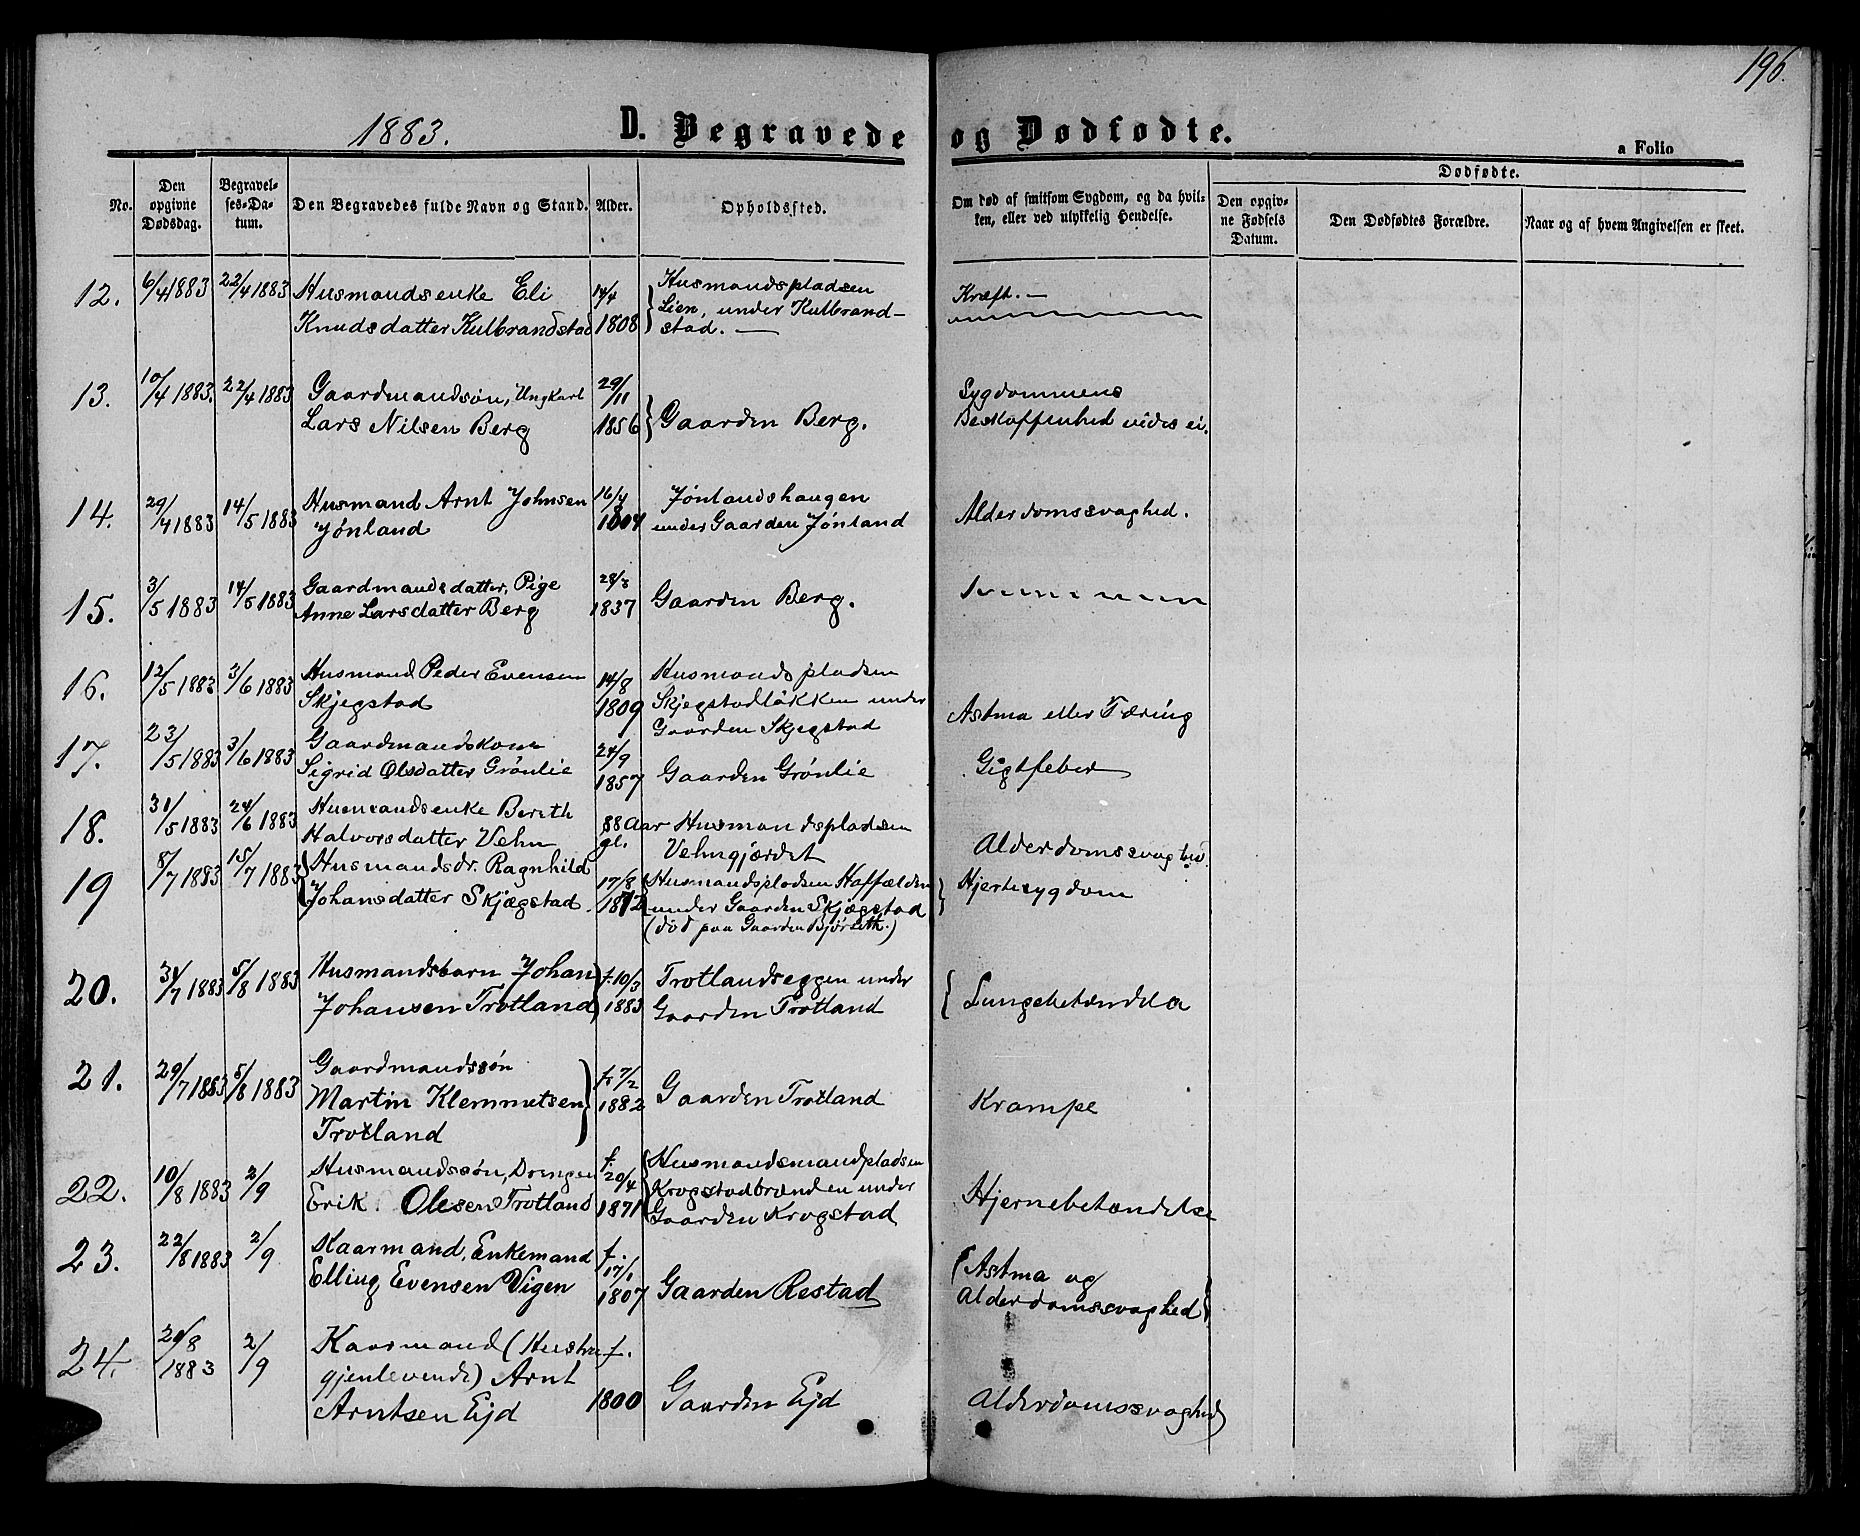 196.
1883.
D. Begravede og Dødfødte.
a Folio
No.
Den opgivne Dødsdag.
Begravelses-Datum.
Den Begravedes fulde Navn og Stand.
Alder.
Opholdssted.
Om død af smitsom Sygdom, og da hvilken, eller ved ulykkelig Hendelse.
Dødfødte.
Den opgivne Fødsels Datum.
Den Dødfødtes Forældre.
Naar og af hvem Angivelsen er skeet.
12. 6/4 1883 22/4 1883 Husmandsenke Eli
Knudsdatter Kulbrandstad
14/4
1808
Husmandspladsen
Lien, under Kulbrand-
stad. —
Kræft. —
13. 10/4 1883. 22/4 1883 Gaardmandsøn, Ungkarl
Lars Nilsen Berg
29/11
1856
Gaarden Berg.
Sygdommens
Beskaffenhed vides ei.
14. 29/4 1883 14/5 1883 Husmand Arnt Johnsen
Jønland
16/4
1804
Jønlandshaugen
under Gaarden Jønland
Alderdomssvaghed.
15. 3/5 1883 14/5 1883 Gaardmandsdatter, Pige
Anne Larsdatter Berg
28/3
1837
Gaarden Berg.
16. 12/5 1883 3/6 1883 Husmand Peder Evensen
Skjegstad
14/8
1809
Husmandspladsen
Skjegstadløkken under
Gaarden Skjegstad
Astma eller Tæring
17. 23/5 1883 3/6 1883 Gaardmandskone
Sigrid Olsdatter Grønlie
24/9
1857
Gaarden Grønlie
Gigtfeber
18. 31/5 1883 24/6 1883 Husmandsenke Bereth
Halvorsdatter Vehn
88 Aar
gl.
Husmandspladsen
Vehngjærdet
Alderdomssvaghed.
19 8/7 1883 15/7 1883 Husmandsdr. Ragnhild
Johansdatter Skjægstad.
17/8
1872
Husmandspladsen Haffælden
under Gaarden Skjægstad
(død paa Gaarden Bjørseth.)
Hjertesygdom
20. 31/7 1883 5/8 1883 Husmandsbarn Johan
Johansen Trotland
f. 10/3
1883
Trotlandseggen under
Gaarden Trotland
Lungebetændelse
21. 29/7 1883 5/8 1883 Gaardmandssøn
Martin Klemmetsen
Trotland
f. 7/2
1882
Gaarden Trotland
Krampe
22. 10/8 1883 2/9 Husmandssøn, Drengen
Erik Olesen Trotland
f.
20/4
1871
Husmandsmandpladsen
Krogstadbrænden under
Gaarden Krogstad
Hjernebetændelse
23. 22/8 1883 2/9 Kaarmand, Enkemand
Elling Evensen Vigen
f.
17/1
1807
Gaarden Restad
Astma og
Alderdomssvaghed
24. 24/8
1883
2/9 Kaarmand (Hustru
gjenlevende) Arnt
Arntsen Ejd
f.
1800
Gaarden Ejd
Alderdomssvaghed